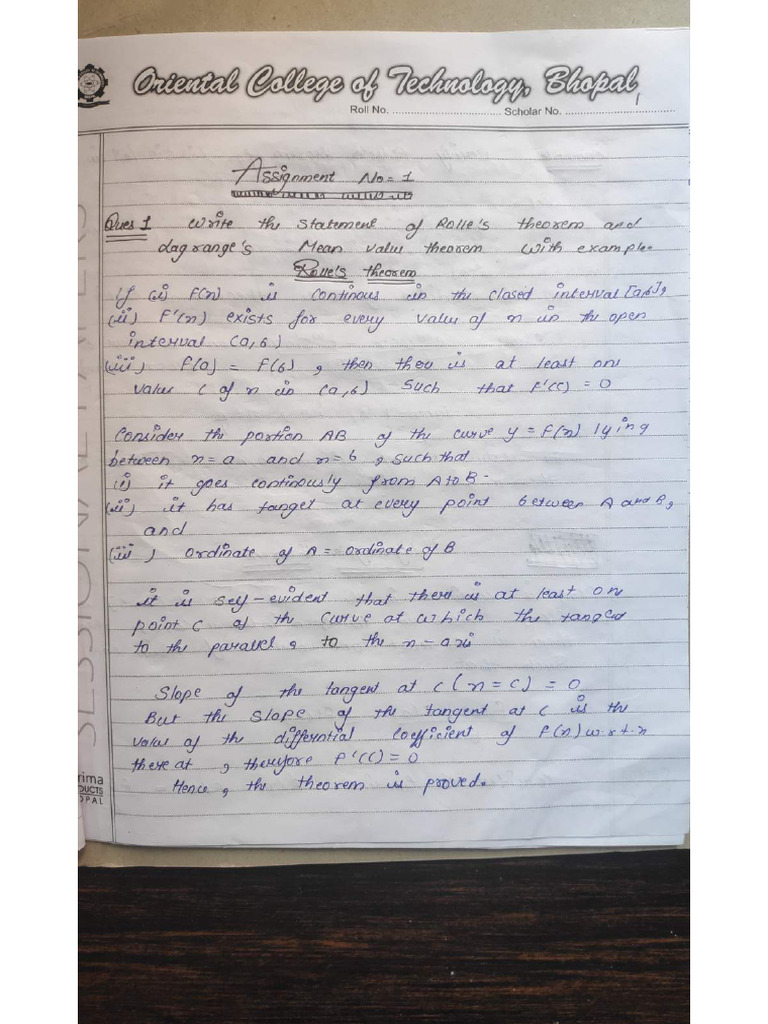 Oriental College of Technology, Bhopal
Roll No. ................................ Scholar No. ................................
1
Assignment No = 1
Ques 1 Write the statement of Rolle's theorem and
Lagrange's Mean value theorem with example.
Rolle's theorem
If (i) F(n) is continous in the closed interval [a,b],
(ii) F'(n) exists for every value of n in the open
interval (a,b)
(iii) F(a) = F(b) , then there is at least one
value c of n in (a,b) Such that F'(c) = 0
Consider the portion AB of the curve y = F(n) lying
between n=a and n=b , such that
(i) it goes continously from A to B -
(ii) it has tanget at every point between A and B,
and
(iii) ordinate of A = ordinate of B
it is self-evident that there is at least one
point C of the curve at which the tanged
to the parallel , to the n-axis
Slope of the tangent at c (n=c) = 0
But the slope of the tangent at c is the
value of the differntial coefficient of F(n) w.r.t.n
there at , therefore F'(c) = 0
Hence , the theorem is proved.
SESSIONAL PAPERS
rima
DUCTS
OPAL